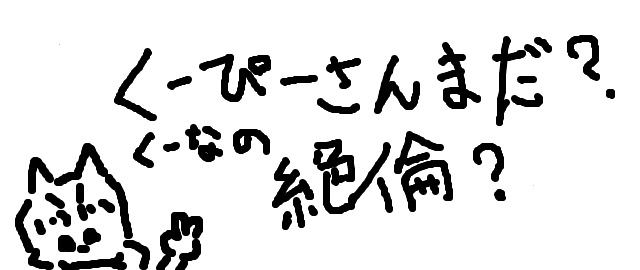 くーぴーさんまだ?
くーなの
絶倫?